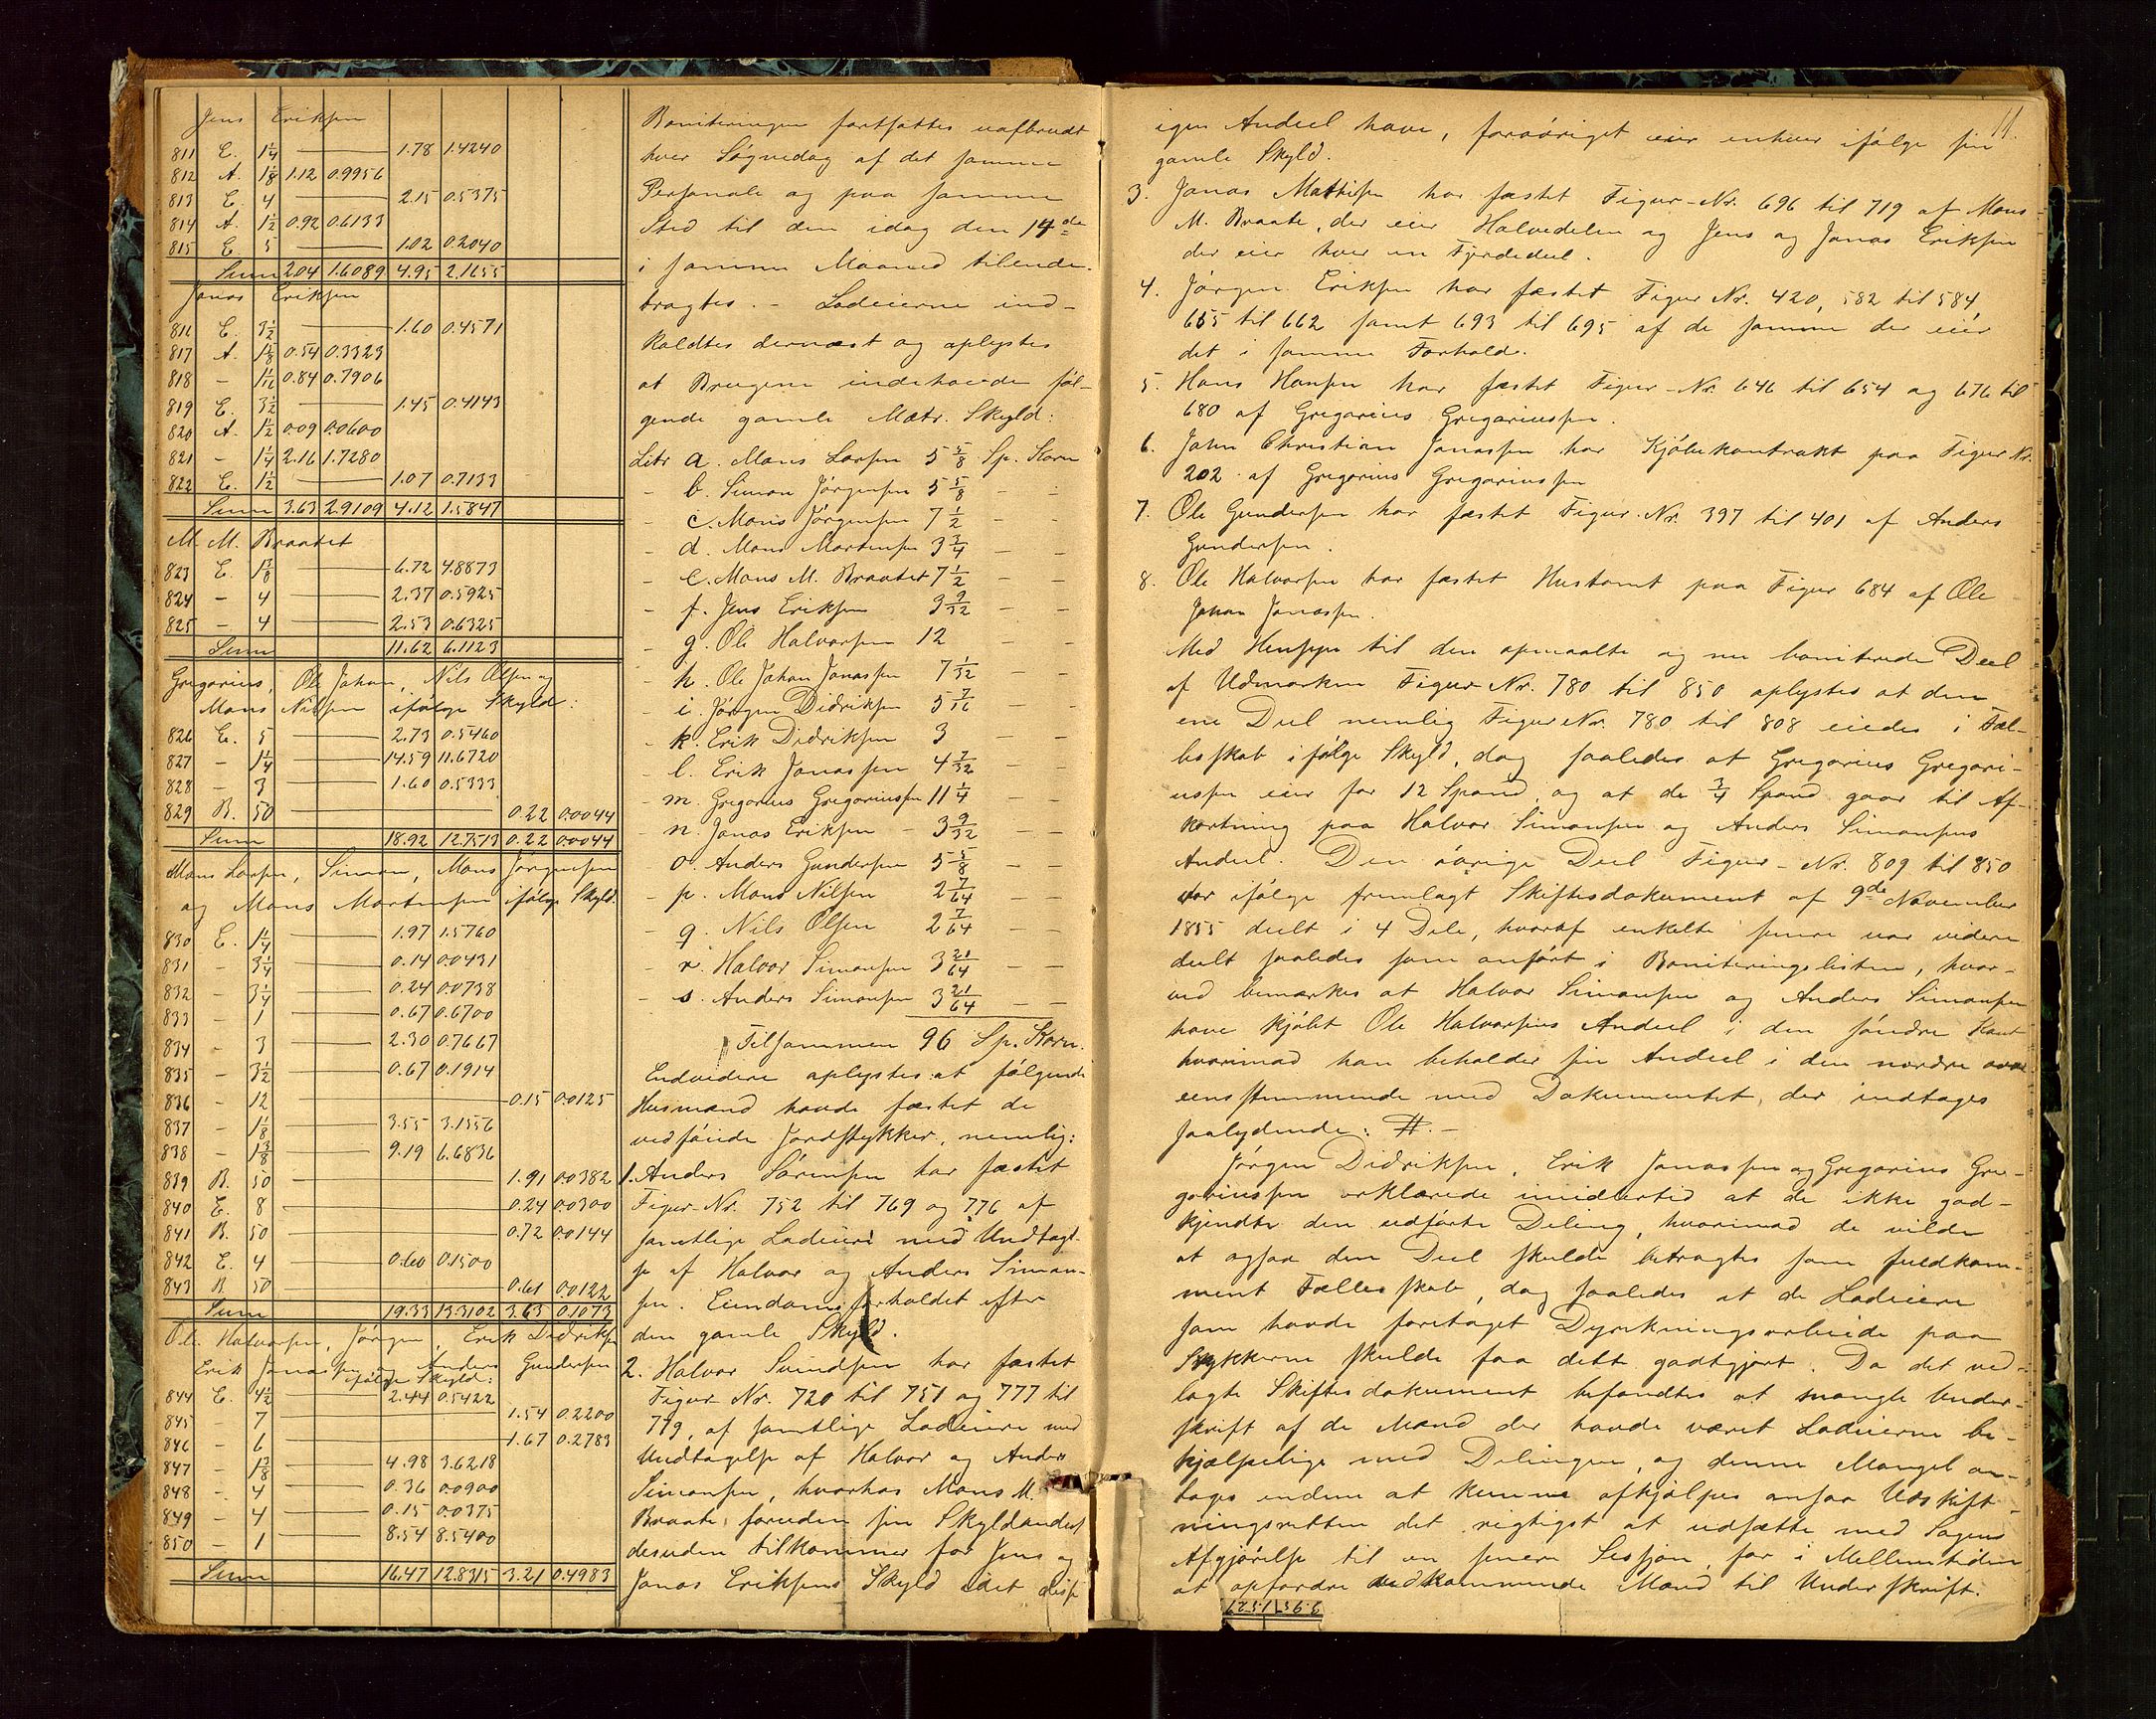 Jens Eriksen
811 E. 1¼ 1.78 1.4240
812 A. 1⅛ 1.12 0.9956
813 E. 4 2.15 0.5375
814 A. 1½ 0.92 0.6133
815 E. 5 1.02 0.2040
Sum 2.04 1.6089 4.95 2.1655
Jonas Eriksen
816 E. 3½ 1.60 0.4571
817 A. 0.54 0.3323
818 - 1 1/16 0.84 0.7906
819 E. 3½ 1.45 0.4143
820 A. 1½ 0.09 0.0600
821 - 1¼ 2.16 1.7280
822 E. 1½ 1.07 0.7133
Sum 3.63 2.9109 4.12 1.5847
M. M. Braatet
823 E. 1⅜ 6.72 4.8873
824 - 4 2.37 0.5925
825 - 4 2.53 0.6325
Sum 11.62 6.1123
Gregorius, Ole Johan, Nils Olsen og
Mons Nilsen ifølge Skyld:
826 E. 5 2.73 0.5460
827 - 1¼ 14.59 11.6720
828 - 3 1.60 0.5333
829 B. 50 0.22 0.0044
Sum 18.92 12.7513 0.22 0.0044
Mons Larsen, Simon, Mons Jørgensen
og Mons Mortensen ifølge Skyld.
830 E. 1¼ 1.97 1.5760
831 - 3¼ 0.14 0.0431
832 - 3¼ 0.24 0.0738
833 - 1 0.67 0.6700
834 - 3 2.30 0.7667
835 - 3½ 0.67 0.1914
836 - 12 0.15 0.0125
837 - 1⅛ 3.55 3.1556
838 - 1⅜ 9.19 6.6836
839 B. 50 1.91 0.0382
840 E. 8 0.24 0.0300
841 B. 50 0.72 0.0144
842 E. 4 0.60 0.1500
843 B. 50 0.61 0.0122
Sum 19.33 13.3102 3.63 0.1073
Ole Halvorsen, Jørgen, Erik Didriks
Erik Jonassen og Anders Gundersen
ifølge Skyld:
844 E. 4½ 2.44 0.5422
845 - 7 1.54 0.2200
846 - 6 1.67 0.2783
847 - 1⅜ 4.98 3.6218
848 - 4 0.36 0.0900
849 - 4 0.15 0.0375
850 - 1 8.54 8.5400
Sum 16.47 12.8315 3.21 0.4983
Boniteringen fortsattes uafbrudt
hver Søgnedag af det samme
Personale og paa samme
Sted til den idag den 14de
i samme Maaned tilende-
bragtes. - Lodeierne ind-
kaldtes dernæst og oplystes
at Brugene indehavde føl-
gende gamle Matr. Skyld:
Litr a. Mons Larsen 5⅝ Sp. Korn
- b. Simon Jørgensen 5⅝ - -
- c. Mons Jørgensen 7½ - -
- d. Mons Mortensen 3¾ - -
- e. Mons M. Braatet 7½ - -
- f. Jens Eriksen 3 9/32 - -
- g. Ole Halvorsen 12 - -
- h. Ole Johan Jonassen 7 1/32 - -
- i. Jørgen Didriksen 5 7/16 - -
- k. Erik Didriksen 3 - -
- l. Erik Jonassen 4 7/32 - -
- m. Gregorius Gregoriussen 11¼ - -
- n. Jonas Eriksen - 3 9/32 - -
- o. Anders Gundersen 5⅝ - -
- p. Mons Nilsen 2 7/64 - -
- q. Nils Olsen 2 7/64 - -
- r. Halvor Simonsen 3 21/64 - -
- s. Anders Simonsen 3 21/64 - -
Tilsammen 96 Sp. Korn.
Endvidere oplystes at følgende
Husmænd havde fæstet de
vedføiede Jordstykker, nemlig:
1. Anders Sørensen har fæstet
Figur-Nr. 752 til 769 og 776 af
samtlige Lodeiere med Undtagel-
se af Halvor og Anders Simon-
sen. Eiendomsforholdet efter
den gamle Skyld.
2. Halvor Svendsen har fæstet
Figur Nr. 720 til 751 og 777 til
779, af samtlige Lodeiere med
Undtagelse af Halvor og Anders
Simonsen, hvorhos Mons M.
Braate, foruden sin Skyldandeel
desuden tilkommer for Jens og
Jonas Eriksens Skyld idet disse
11.
igen Andeel have, forøvrigt eier enhver ifølge sin
gamle Skyld.
3. Jonas Mathisen har fæstet Figur-Nr. 696 til 719 af Mons
M. Braate, der eier Halvedelen og Jens og Jonas Eriksen
der eier hver en Fjerdedeel.
4. Jørgen Eriksen har fæstet Figur Nr. 420, 582 til 584,
655 til 662 samt 693 til 695 af de samme der eier
det i samme Forhold.
5. Hans Hansen har fæstet Figur-Nr. 646 til 654 og 676 til
680 af Gregorius Gregoriussen.
6. John Christian Jonassen har Kjøbekontrakt paa Figur Nr.
202 af Gregorius Gregoriussen
7. Ole Gundersen har fæstet Figur-Nr. 397 til 401 af Anders
Gundersen.
8. Ole Halvorsen har fæstet Hustomt paa Figur 684 af Ole
Johan Jonassen.
Med Hensyn til den opmaalte og nu boniterede Deel
af Udmarken Figur-Nr. 780 til 850 oplystes at den
ene Deel nemlig Figur Nr. 780 til 808 eiedes i Fæl-
lesskab ifølge Skyld, dog saaledes at Gregorius Gregori-
ussen eier for 12 Spand og at de ¾ Spand gaar til Af-
kortning paa Halvor Simonsen og Anders Simonsens
Andeel. Den øvrige Deel Figur-Nr. 809 til 850
var ifølge fremlagt Skiftesdokument af 9de November
1855 deelt i 4 Dele, hvoraf enkelte senere var videre
deelt saaledes som anført i Boniteringslisten, hvor-
ved bemærkes at Halvor Simonsen og Anders Simonsen
have kjøbt Ole Halvorsens Andeel i den søndre Kant
hvorimod han beholder sin Andeel i den nordre over-
eensstemmende med Dokumentet, der indtages
saalydende: #. -
Jørgen Didriksen, Erik Jonassen og Gregorius Gre-
goriussen erklærede imidlertid at de ikke god-
kjendte den udførte Deling, hvorimod de vilde
at ogsaa den Deel skulde betragtes som fuldkom-
ment Fællesskab, dog saaledes at de Lodeiere
som havde foretaget Dyrkningsarbeide paa
Stykkerne skulde faa dette godtgjort. Da det ved-
lagte Skiftesdokument befandtes at mangle Under-
skrift af de Mænd der havde været Lodeierne be-
hjælpelige med Delingen, og denne Mangel an-
toges endnu at kunne afhjælpes ansaa Udskift-
ningsretten det rigtigst at udsætte med Sagens
Afgjørelse til en senere Session, for i Mellemtiden
at opfordre vedkommende Mænd til Underskrift.